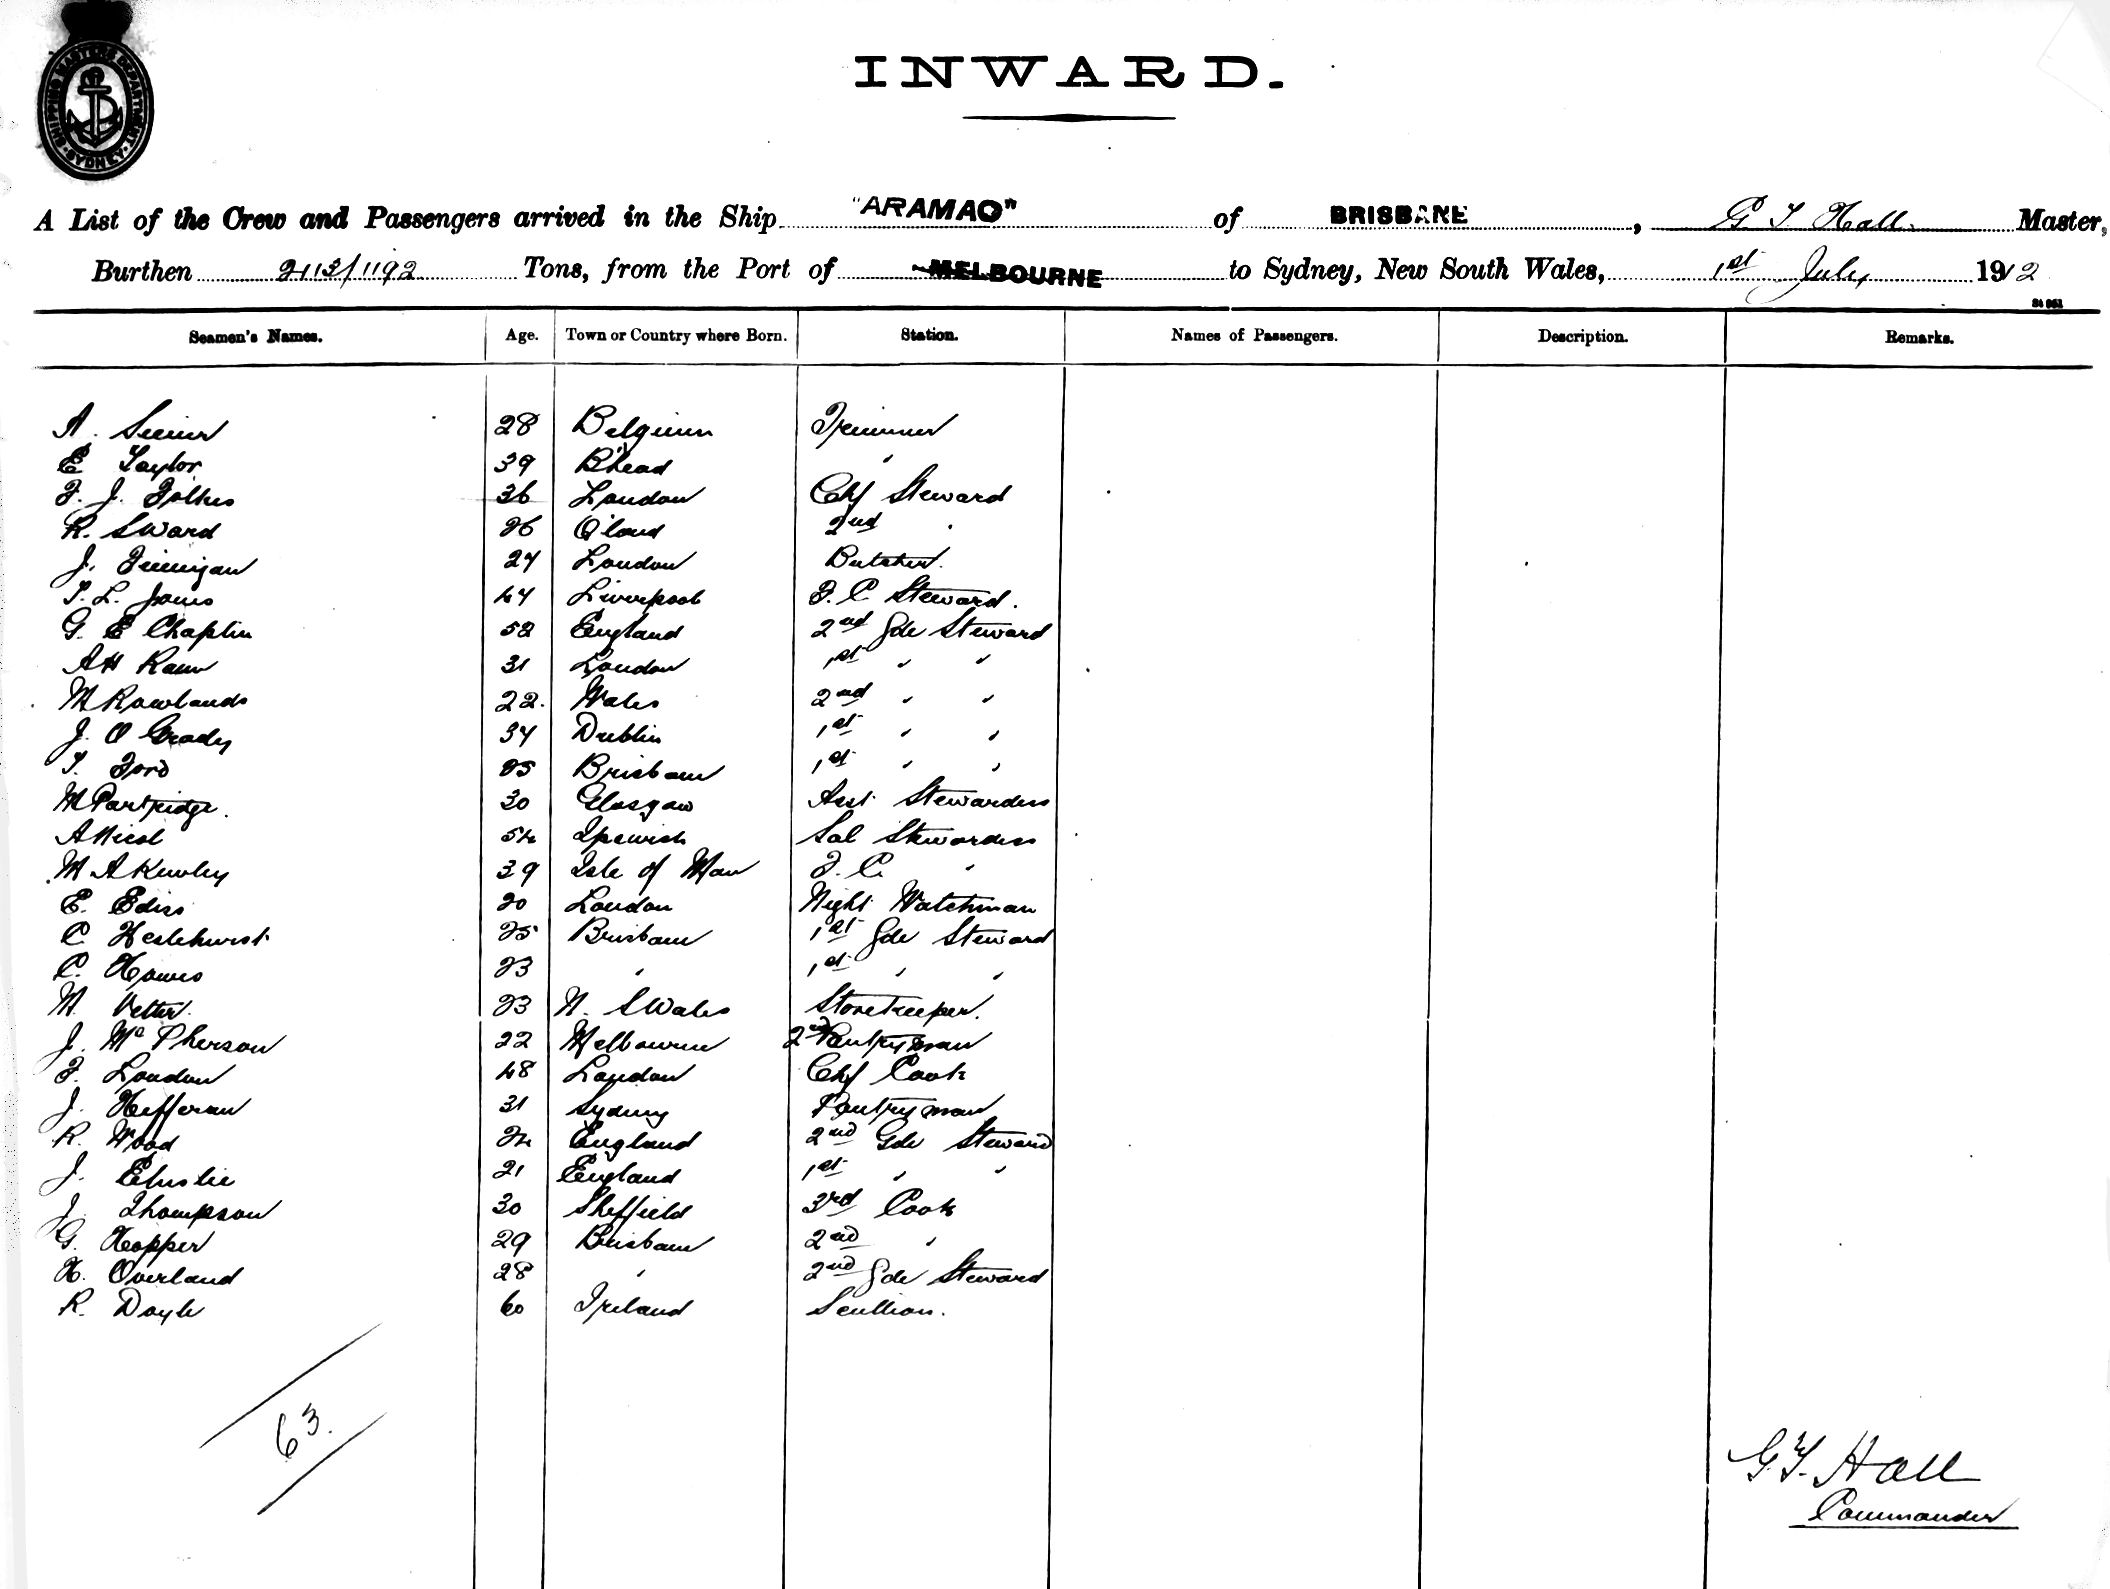 SHIPPING MASTERS DEPARTMENT · SYDNEY ·
INWARD.
A List of the Crew and Passengers arrived in the Ship "ARAMAC" of BRISBANE, G T Hall. Master,
Burthen 2113/1192 Tons, from the Port of MELBOURNE to Sydney, New South Wales, 1st July 1912
Seamen's Names. Age. Town or Country where Born. Station. Names of Passengers. Description. Remarks.
A. 28 Belgium Trimmer
E Taylor 39 B'head "
F. J. 36 London Chf Steward
R. SWard 26 2nd "
J. Finnigan 27 London Butcher.
T. L. Jones 47 Liverpool F. C. Steward.
G. E Chaplin 52 England 2nd Gde Steward
A H 31 London 1st " "
M Rowlands 22. Wales 2nd " "
J. O Grady 37 Dublin 1st " "
T. Ford 25 Brisbane 1st " "
M Partridge. 30 Glasgow Asst Stewardess
A Nicol 54 Ipswich Sal Stewardess
M A Kewley 39 Isle of Man F. C. "
E. Ediss 20 London Night Watchman
C Heslehurst 25 Brisbane 1st Gde Steward
C. Hawes 23 " 1st " "
M. Vetter. 23 N. S Wales Storekeeper.
J. Mc Pherson 22 Melbourne 2nd Pantryman
F. London 48 London Chf Cook
J. Hefferan 31 Sydney Pantryman
R. Wood 24 England 2nd Gde Steward
J. Elmslie 21 England 1st " "
J Thompson 30 Sheffield 3rd Cook
G. Hopper 29 Brisbane 2nd "
H. Overland 28 " 2nd Gde Steward
R. Doyle 60 Ireland Scullion.
63.
G. T. Hall
Commander